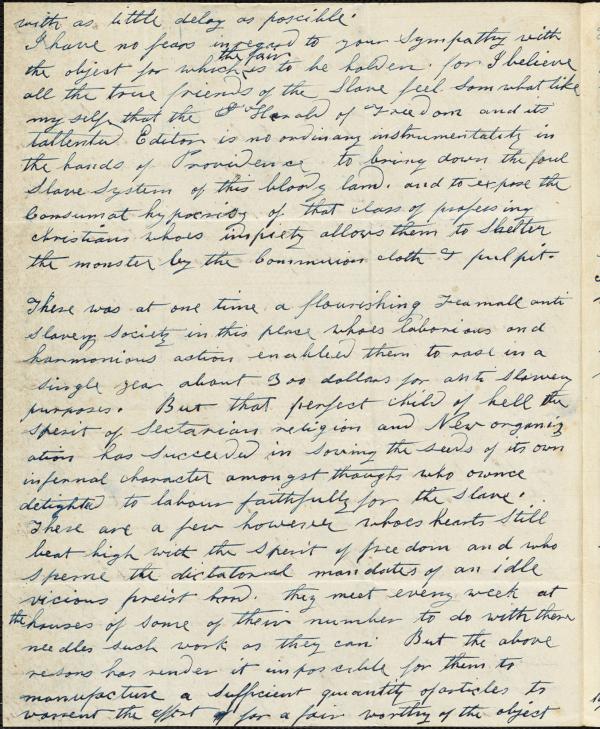 with as little delay as poscible.
I have no fears in regard to your Sympathy with
the object for which the fair is to be holden. for I believe
all the true friends of the Slave feel Som what like
my self that the Herald of Freedom and its
tallented Editor is no ordinary instrumentality in
the hands of Providence to bring down the foul
Slave System of this bloody land. and to expose the
Consumat hypocricy of that class of professing
christians whoes impiety allows them to Shelter
the monster by the Communion cloth & pulpit.
There was at one time a flourishing Feamall anti
Slavery Society in this place whoes laborious and
harmonious action enabled them to rase in a
single year about 300 dollars for anti Slavery
purposes. But that perfect child of hell the
Spirit of Sectarian religion and New organiz
ation has Succeeded in Sowing the seeds of its own
infernal character amongst thoughs who ownce
delighted to labour faithfully for the Slave.
There are a few however whoes hearts Still
beat high with the Spirit of freedom and who
Sperne the dictatorial mandates of an idle
vicious preist hood. they meet every week at
the houses of some of their number to do with there
needles such work as they can. But the above
resons has render it imposcible for them to
manufacture a Sufficient quantity of articles to
warrent the effort for a fair worthy of the object